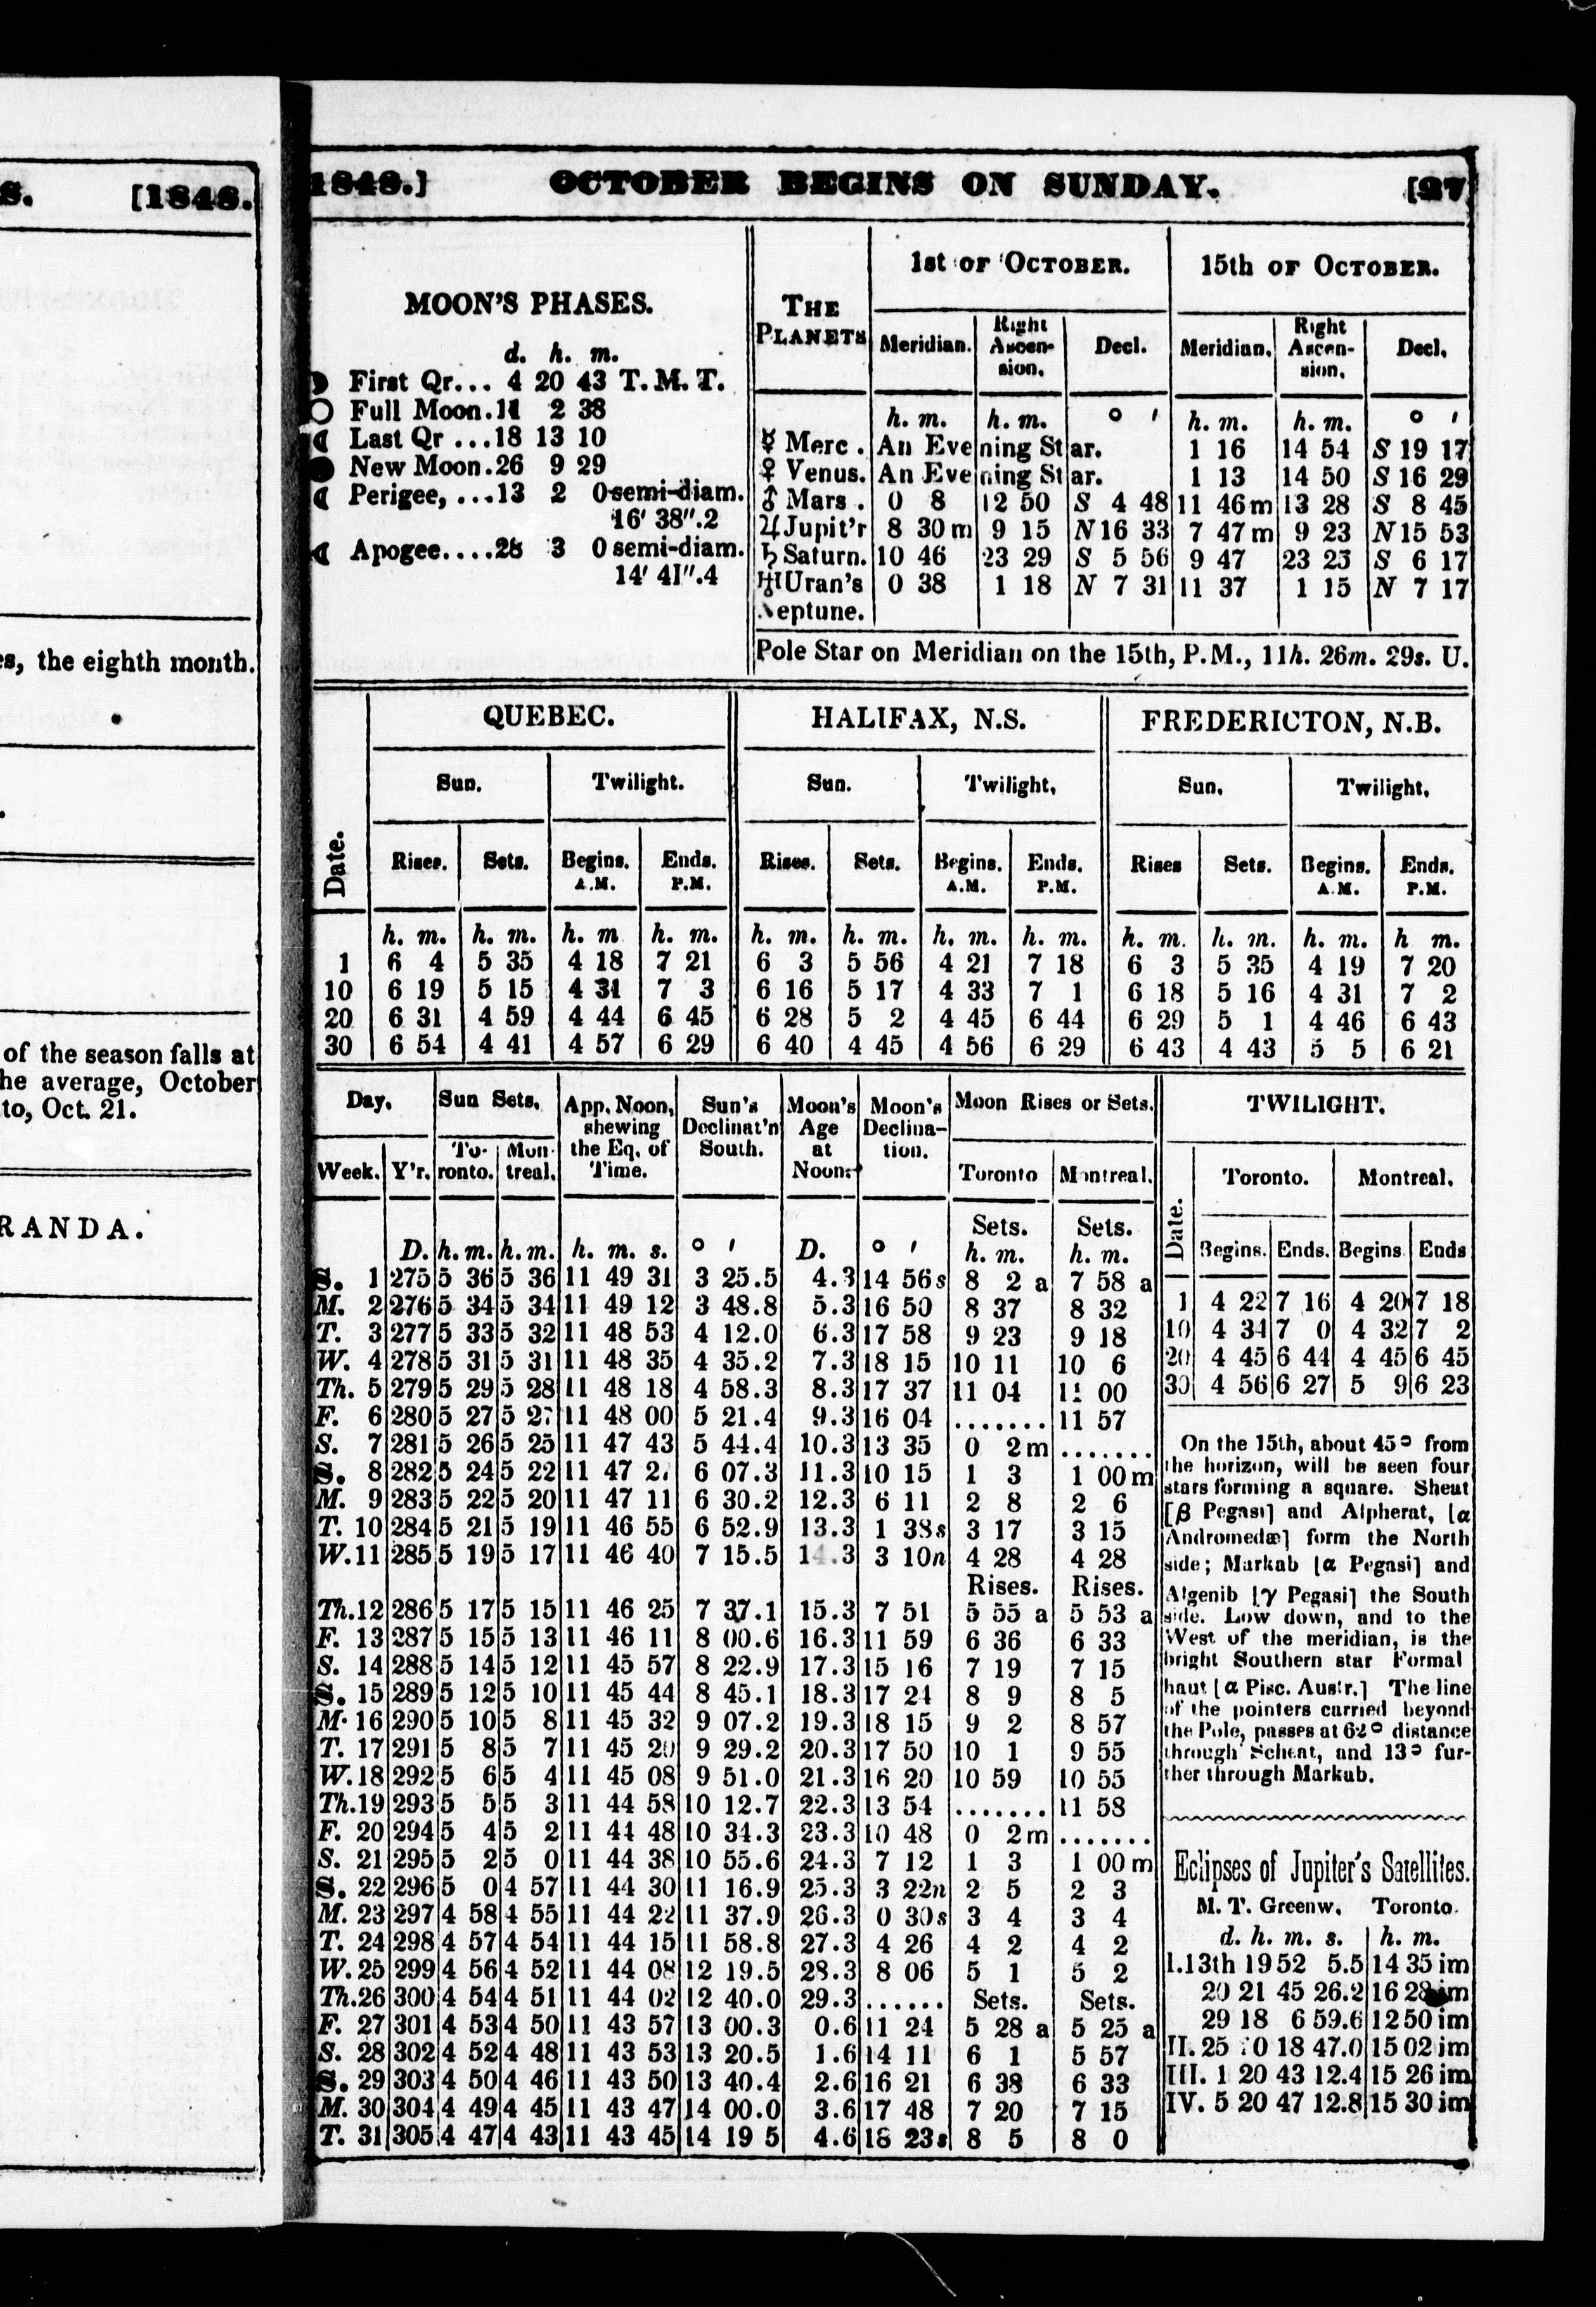 S. [1848.
es, the eighth month.
of the season falls at
he average, October
to, Oct. 21.
RANDA.
1848.] OCTOBER BEGINS ON SUNDAY. [27
MOON'S PHASES.
d. h. m.
First Qr... 4 20 43 T. M. T.
Full Moon. 11 2 38
Last Qr ...18 13 10
New Moon.26 9 29
Perigee, ...13 2 0 semi-diam.
16' 38".2
Apogee....28 3 0 semi-diam.
14' 41".4
THE PLANETS 1st OF OCTOBER. 15th OF OCTOBER.
Meridian. Right Ascension. Decl. Meridian. Right Ascension. Decl.
h. m. h. m. ° ' h. m. h. m. ° '
☿ Merc . An Evening Star. 1 16 14 54 S 19 17
♀ Venus. An Evening Star. 1 13 14 50 S 16 29
♂ Mars . 0 8 12 50 S 4 48 11 46 m 13 28 S 8 45
♃ Jupit'r 8 30 m 9 15 N 16 33 7 47 m 9 23 N 15 53
♄ Saturn. 10 46 23 29 S 5 56 9 47 23 23 S 6 17
♅ Uran's 0 38 1 18 N 7 31 11 37 1 15 N 7 17
Neptune.
Pole Star on Meridian on the 15th, P.M., 11h. 26m. 29s. U.
QUEBEC. HALIFAX, N.S. FREDERICTON, N.B.
Sun. Twilight. Sun. Twilight. Sun. Twilight.
Date. Rises. Sets. Begins. A.M. Ends. P.M. Rises. Sets. Begins. A.M. Ends. P.M. Rises Sets. Begins. A.M. Ends. P.M.
h. m. h. m. h. m h. m. h. m. h. m. h. m. h. m. h. m. h. m. h. m. h m.
1 6 4 5 35 4 18 7 21 6 3 5 56 4 21 7 18 6 3 5 35 4 19 7 20
10 6 19 5 15 4 31 7 3 6 16 5 17 4 33 7 1 6 18 5 16 4 31 7 2
20 6 31 4 59 4 44 6 45 6 28 5 2 4 45 6 44 6 29 5 1 4 46 6 43
30 6 54 4 41 4 57 6 29 6 40 4 45 4 56 6 29 6 43 4 43 5 5 6 21
Day. Sun Sets. App. Noon, shewing the Eq. of Time. Sun's Declinat'n South. Moon's Age at Noon. Moon's Declination. Moon Rises or Sets.
Week. Y'r. Toronto. Montreal. Toronto Montreal.
Sets. Sets.
D. h. m. h. m. h. m. s. ° ' D. ° ' h. m. h. m.
S. 1 275 5 36 5 36 11 49 31 3 25.5 4.3 14 56s 8 2 a 7 58 a
M. 2 276 5 34 5 34 11 49 12 3 48.8 5.3 16 50 8 37 8 32
T. 3 277 5 33 5 32 11 48 53 4 12.0 6.3 17 58 9 23 9 18
W. 4 278 5 31 5 31 11 48 35 4 35.2 7.3 18 15 10 11 10 6
Th. 5 279 5 29 5 28 11 48 18 4 58.3 8.3 17 37 11 04 11 00
F. 6 280 5 27 5 27 11 48 00 5 21.4 9.3 16 04 ....... 11 57
S. 7 281 5 26 5 25 11 47 43 5 44.4 10.3 13 35 0 2 m .......
S. 8 282 5 24 5 22 11 47 6 07.3 11.3 10 15 1 3 1 00 m
M. 9 283 5 22 5 20 11 47 11 6 30.2 12.3 6 11 2 8 2 6
T. 10 284 5 21 5 19 11 46 55 6 52.9 13.3 1 38s 3 17 3 15
W. 11 285 5 19 5 17 11 46 40 7 15.5 14.3 3 10n 4 28 4 28
Rises. Rises.
Th. 12 286 5 17 5 15 11 46 25 7 37.1 15.3 7 51 5 55 a 5 53 a
F. 13 287 5 15 5 13 11 46 11 8 00.6 16.3 11 59 6 36 6 33
S. 14 288 5 14 5 12 11 45 57 8 22.9 17.3 15 16 7 19 7 15
S. 15 289 5 12 5 10 11 45 44 8 45.1 18.3 17 24 8 9 8 5
M. 16 290 5 10 5 8 11 45 32 9 07.2 19.3 18 15 9 2 8 57
T. 17 291 5 8 5 7 11 45 20 9 29.2 20.3 17 50 10 1 9 55
W. 18 292 5 6 5 4 11 45 08 9 51.0 21.3 16 20 10 59 10 55
Th. 19 293 5 5 5 3 11 44 58 10 12.7 22.3 13 54 ....... 11 58
F. 20 294 5 4 5 2 11 44 48 10 34.3 23.3 10 48 0 2 m .......
S. 21 295 5 2 5 0 11 44 38 10 55.6 24.3 7 12 1 3 1 00 m
S. 22 296 5 0 4 57 11 44 30 11 16.9 25.3 3 22n 2 5 2 3
M. 23 297 4 58 4 55 11 44 22 11 37.9 26.3 0 30s 3 4 3 4
T. 24 298 4 57 4 54 11 44 15 11 58.8 27.3 4 26 4 2 4 2
W. 25 299 4 56 4 52 11 44 08 12 19.5 28.3 8 06 5 1 5 2
Th. 26 300 4 54 4 51 11 44 02 12 40.0 29.3 ...... Sets. Sets.
F. 27 301 4 53 4 50 11 43 57 13 00.3 0.6 11 24 5 28 a 5 25 a
S. 28 302 4 52 4 48 11 43 53 13 20.5 1.6 14 11 6 1 5 57
S. 29 303 4 50 4 46 11 43 50 13 40.4 2.6 16 21 6 38 6 33
M. 30 304 4 49 4 45 11 43 47 14 00.0 3.6 17 48 7 20 7 15
T. 31 305 4 47 4 43 11 43 45 14 19 5 4.6 18 23s 8 5 8 0
TWILIGHT.
Date. Toronto. Montreal.
Begins. Ends. Begins Ends
1 4 22 7 16 4 20 7 18
10 4 34 7 0 4 32 7 2
20 4 45 6 44 4 45 6 45
30 4 56 6 27 5 9 6 23
On the 15th, about 45° from
the horizon, will be seen four
stars forming a square. Sheut
[β Pegasi] and Alpherat, [α
Andromedæ] form the North
side; Markab [α Pegasi] and
Algenib [γ Pegasi] the South
side. Low down, and to the
West of the meridian, is the
bright Southern star Formal
haut [α Pisc. Austr.] The line
of the pointers carried beyond
the Pole, passes at 62° distance
through Scheat, and 13° fur-
ther through Markab.
Eclipses of Jupiter's Satellites.
M. T. Greenw. Toronto.
d. h. m. s. h. m.
I. 13th 19 52 5.5 14 35 im
20 21 45 26.2 16 28 im
29 18 6 59.6 12 50 im
II. 25 0 18 47.0 15 02 im
III. 1 20 43 12.4 15 26 im
IV. 5 20 47 12.8 15 30 im